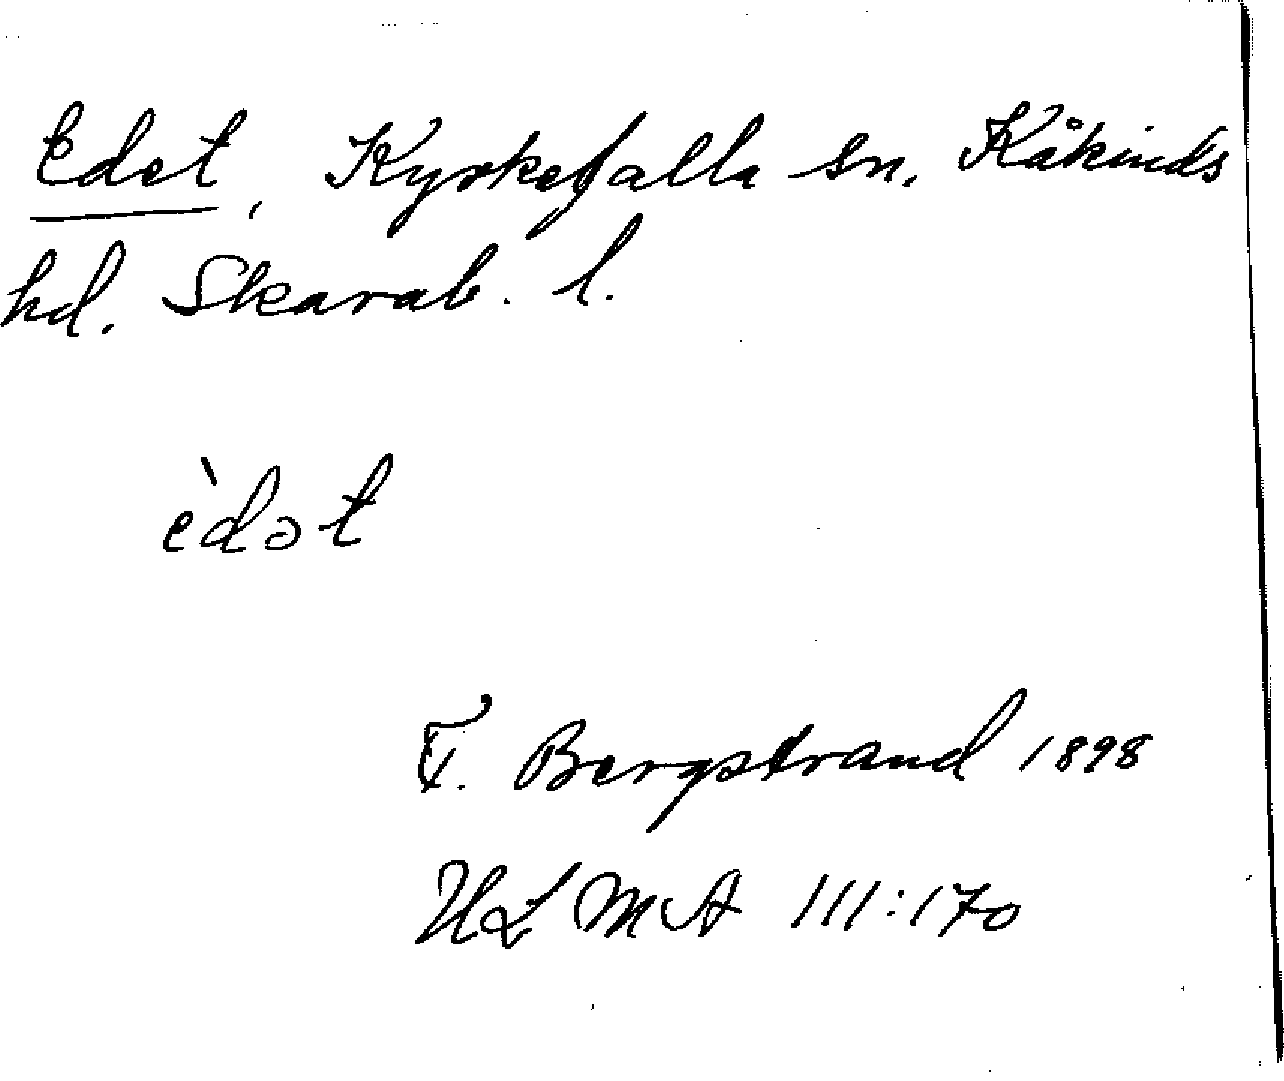 Edet, Kyrkefalla sn. Kåkinds
hd. Skarab. l.
èdət
F. Bergstrand 1898
ULMA 111:170